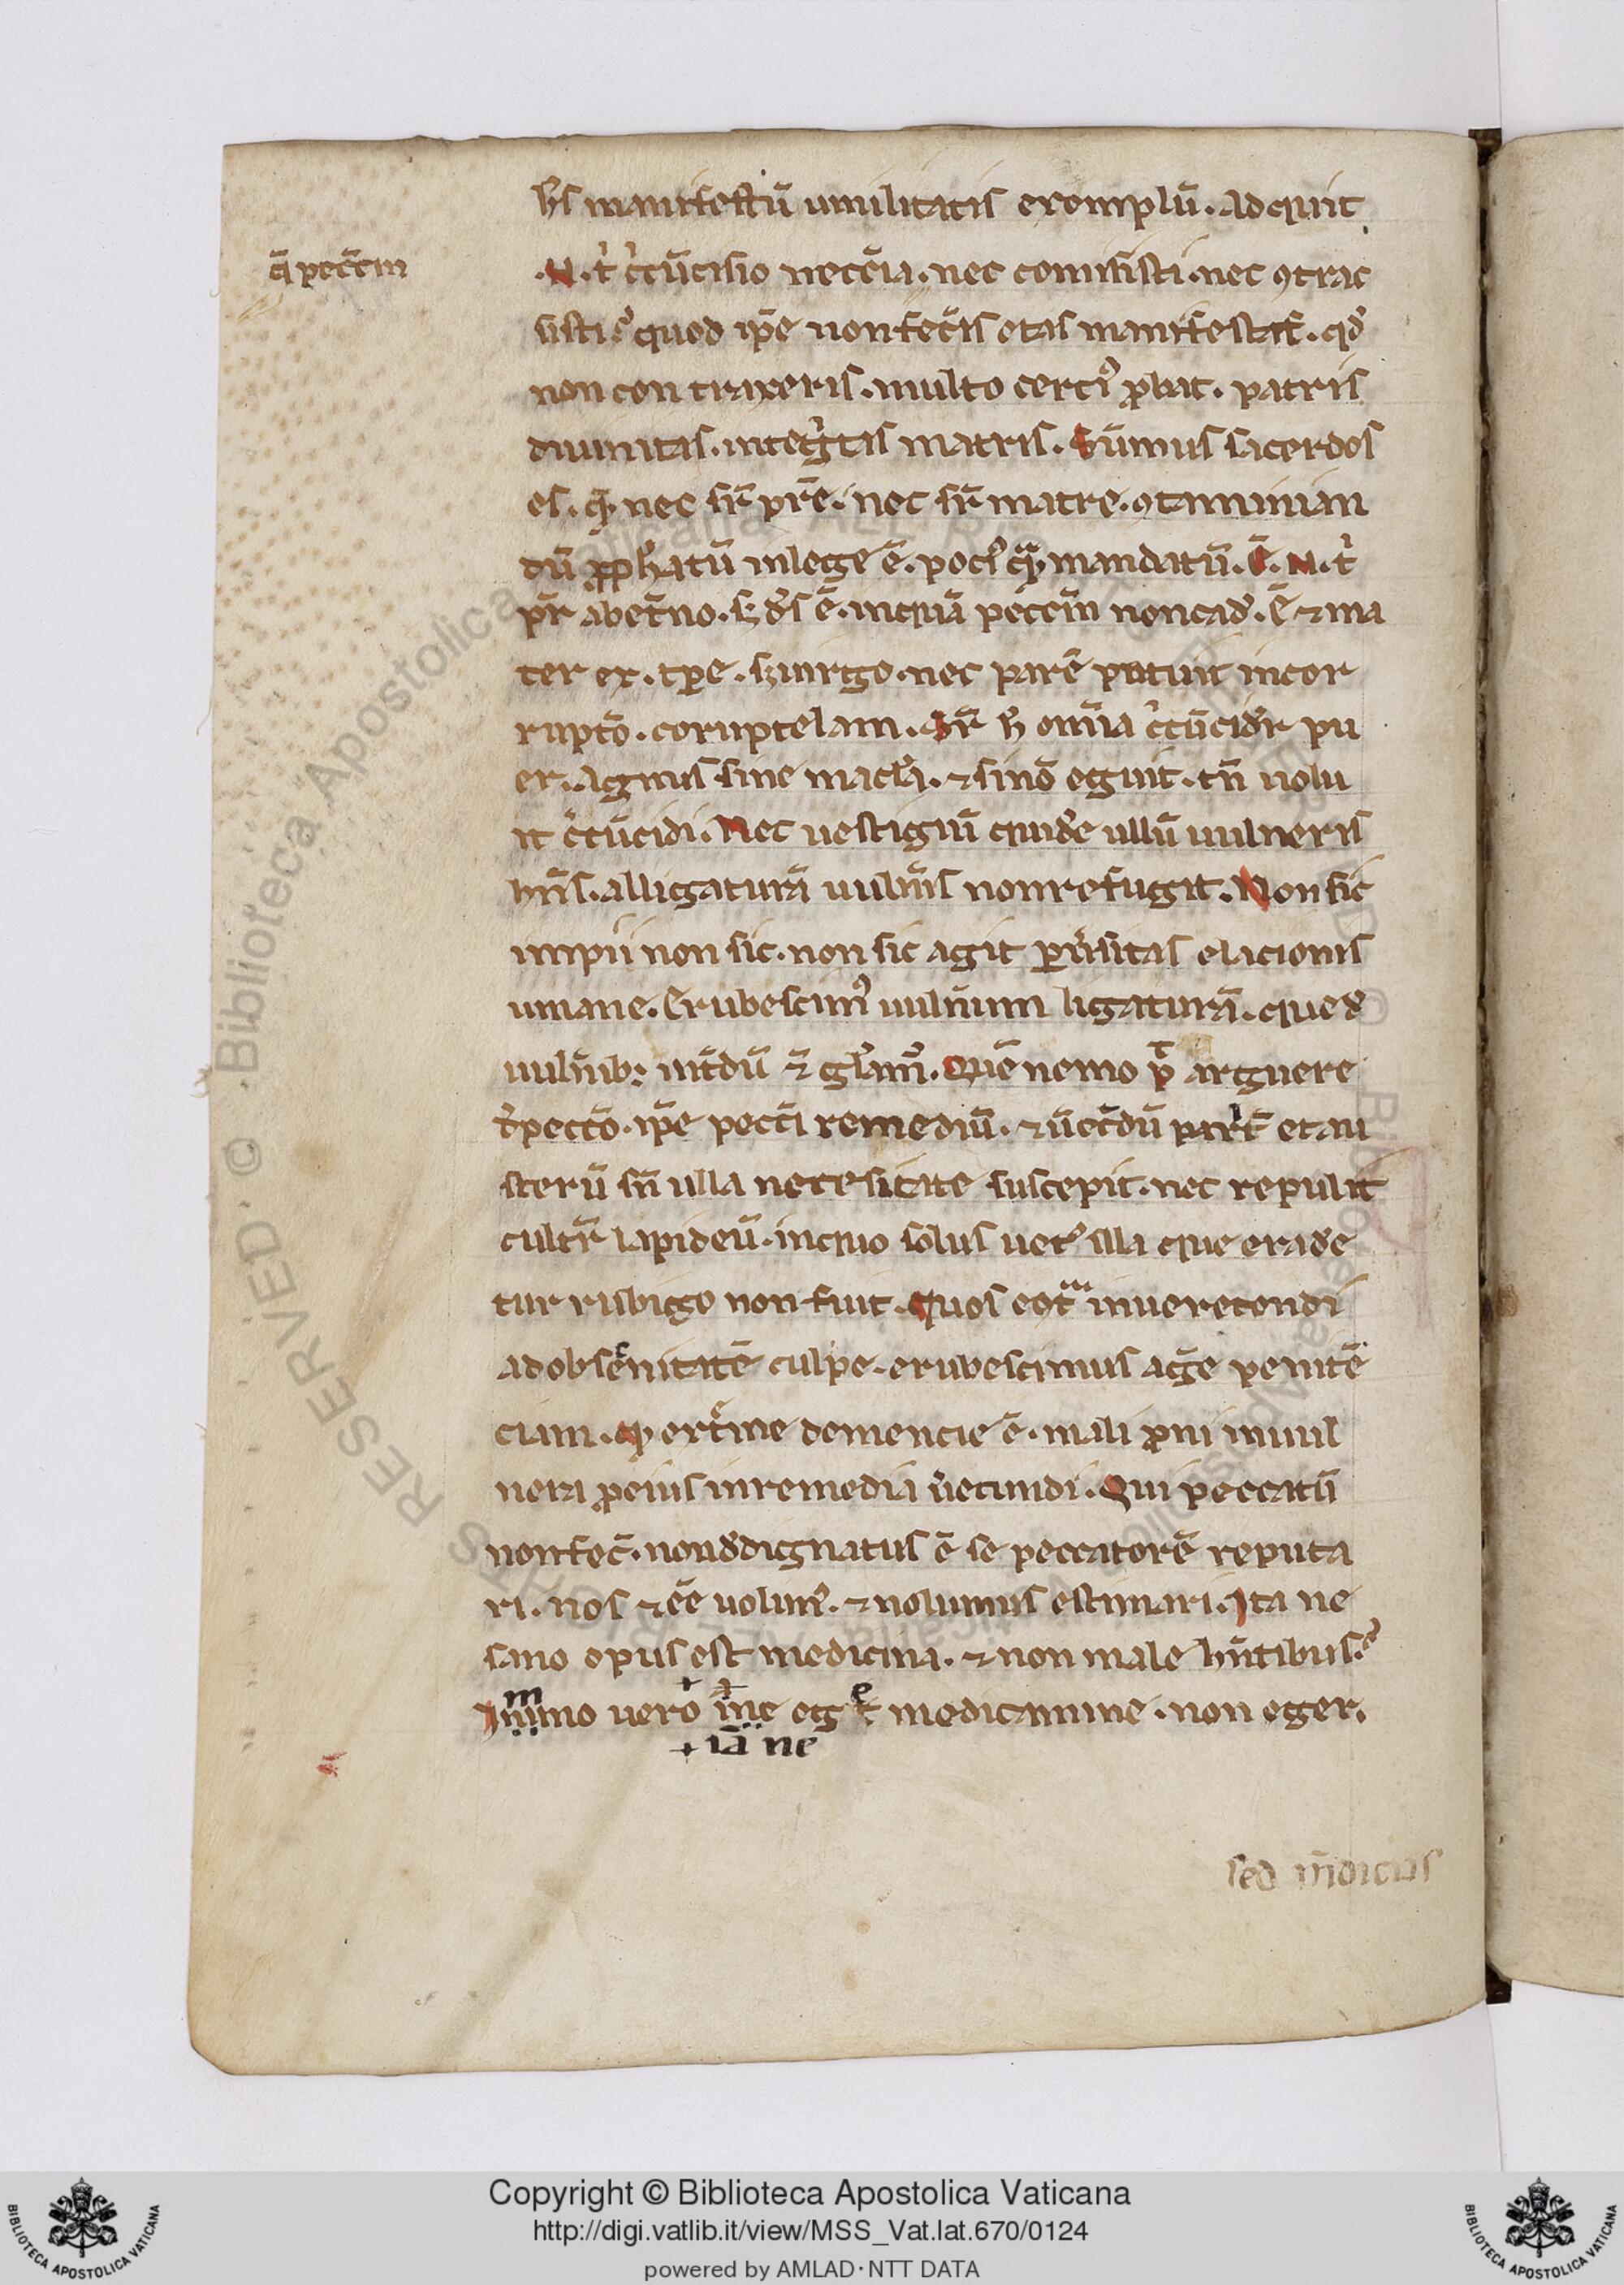 hr̄s manifestū umilitatis exemplū. Ad quit
q̄ peccēm
.N. t' c̄cūcisio neccīa. nec comisisti. nec 9trac
sisti? quod ip̄e non fec̄is etas manifestat. qđ
non con traxeris. multo certi9 p̄bat. patris
diuinitas. integ̃tis matris. Sūmus sacerdos
es. q̄ nec sr̄ pr̄e. nec sr̄ matre. 9taminan
dū p̄ph̄atū in lege ē. poci9 q̄ mandatū. Ē. N. t'
pr̄ ab et̄no. sʒ dr̄s ē. in quā peccēm non cad. Ē ⁊ ma
ter ex. tp̄e. sʒ uirgo. nec parē potuit incor
ruptō. coruptelam. Sr̄ h̄ omīa c̄cūcid̄r pu
er. Agnus sine mac̄la. ⁊ si nō eguit. tn̄ uolu
it c̄cūcidi. Nec uestigiū quid̄e ullū uulneris
hn̄s. alligaturā uuln̄is non refugit. Non sic
impii non sic. non sic agit p̄uersitas elacionis
umane. Erubescim9 uuln̄um ligaturā. que đ
uuln̄ib; int̄dū ⁊ gl̄am̄. Quē nemo p̄ t arguere
đ peccō. ip̄e pocc̄i remediū. ⁊ ūec̄dū parit̄ et au
sterū sn̄ ulla necesitate suscepit. nec repulit
cultr̄ lapideū. in quo solus uet9 illa que erade
tur rubigo non fuit. Quos eq̄t̄ inuerecondi
ad obsenitatē culpe. erubescimus aḡe penitē
ciam. q̄ ext̄me demencie ē. mali p̄ni in uul
nera peius in remedia ūecundi. Qui peccatū
non fec̄. non đdignatus ē se peccatorē reputa
ri. nos ⁊ eē uolum9. ⁊ nolumus estimari. Ita ne
sano opus est medicina. ⁊ non male hn̄tibus?
Immo uero + īne eget medicamine. non eger.
+ iā ne
sed m̄dicus
Copyright © Biblioteca Apostolica Vaticana
http://digi.vatlib.it/view/MSS_Vat.lat.670/0124
powered by AMLAD·NTT DATA